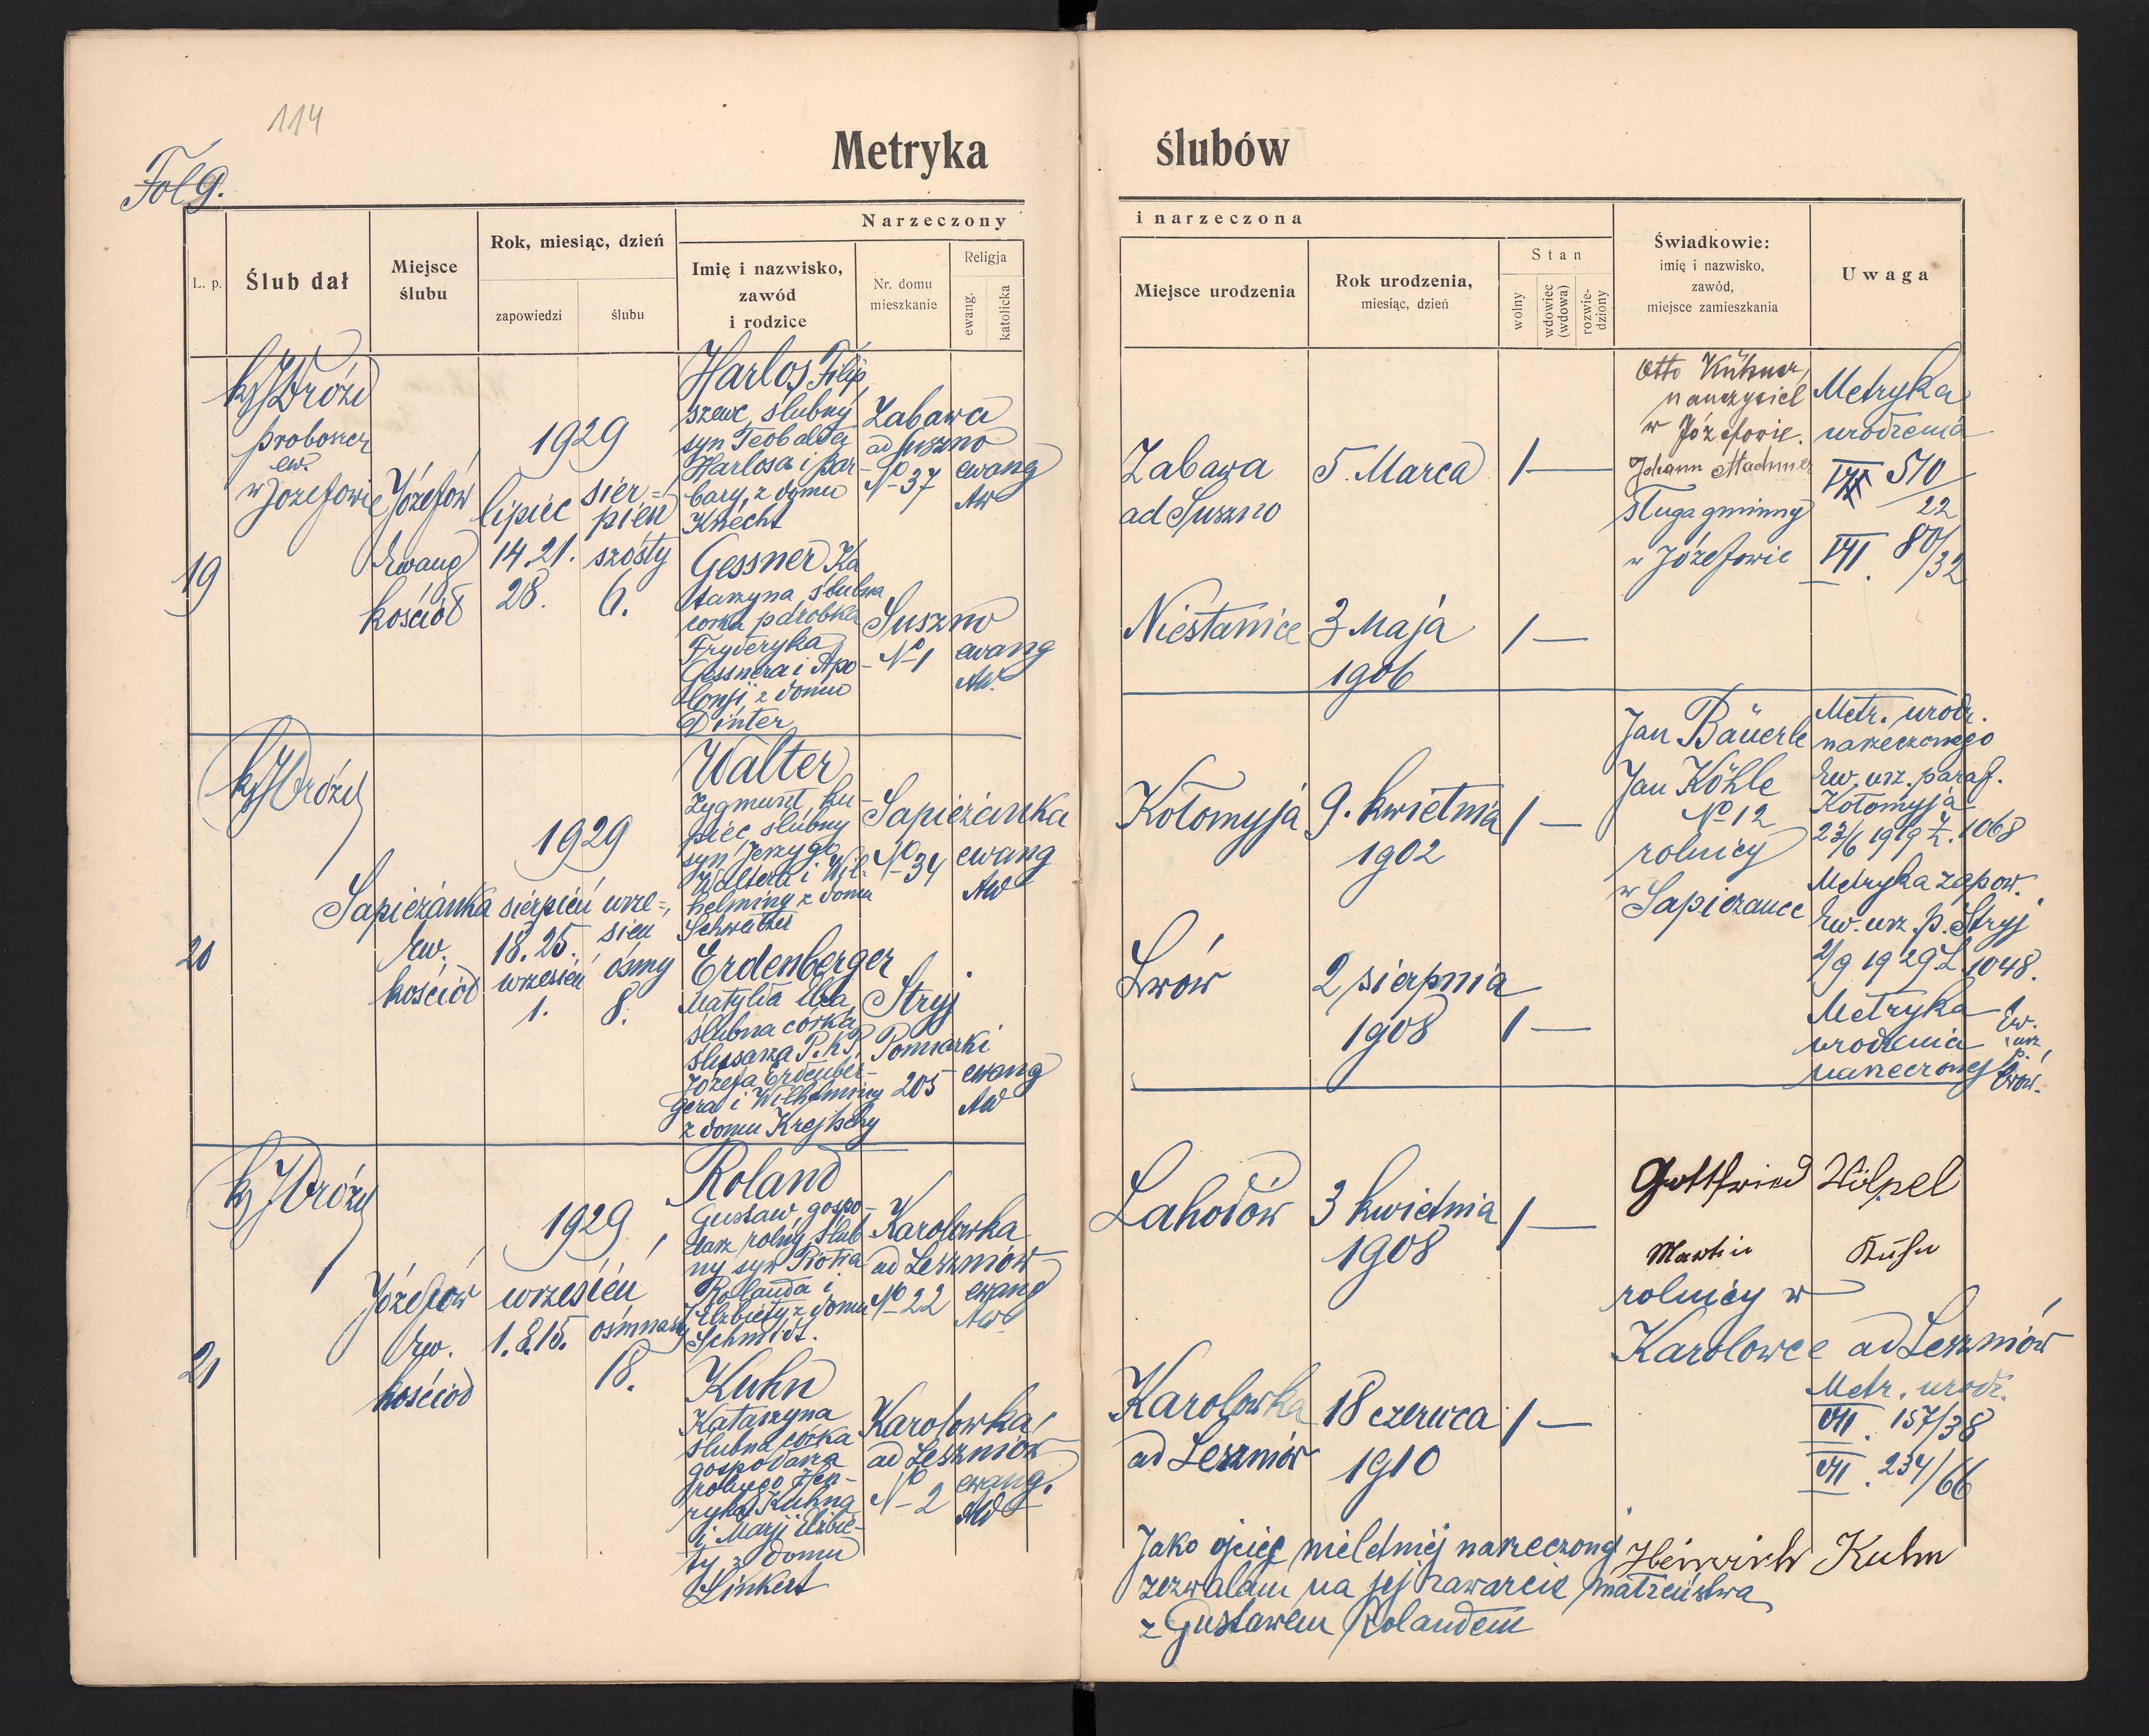 114
Fol 9.
Metryka ślubów
L. p.
Ślub dał
Miejsce
ślubu
Rok, miesiąc, dzień
zapowiedzi
ślubu
Narzeczony
Imię i nazwisko,
zawód
i rodzice
Nr. domu
mieszkanie
Religja
ewang.
katolicka
i narzeczona
Miejsce urodzenia
Rok urodzenia,
miesiąc, dzień
Stan
wolny
wdowiec
(wdowa)
rozwie-
dziony
Świadkowie:
imię i nazwisko,
zawód,
miejsce zamieszkania
Uwaga
19
ks J Dróżd
proboszcz
ew.
w Józefowie
Józefów
Ewang
kościół
1929
lipiec
14. 21.
28.
sier=
pień
szósty
6.
Harlos Filip,
szewc, ślubny
syn Teobalda
Harlosa i Bar-
bary, z domu
Knecht
Zabawa
ad Suszno
No 37
ewang
AW
Zabawa
ad Suszno
5. Marca
1
Otto Kühner,
nauczyciel
w Józefowie.
Johann Machmer
sługa gminny
w Józefowie
Metryka
urodzenia
510/22
VII. 80/32
Gessner Ka
tarzyna, ślubna
córka parobka
Fryderyka
Gessnera i Apo-
lonji, z domu
Dinter
Suszno
No 1
ewang
AW.
Niestanice
3 Maja
1906
1
20
ks J Dróżd
Sapieżanka
Ew.
kościół
1929
sierpień
18. 25.
wrzesień
1.
wrze=
sień
ósmy
8.
Walter
Zygmunt, ku-
piec, ślubny
syn Jerzego
Waltera i Wil-
helminy z domu
Sapieżanka
No 34
ewang
AW
Kołomyja
9. kwietnia
1902
1
Jan Bäuerle
Jan Köhle
No 12
rolnicy
w Sapieżance
Metr. urodz.
narzeczonego
Ew. urz. paraf.
Kołomyja
23/6 1919 L. 1068
Metryka zapow.
Ew. urz. p. Stryj
2/9 1929 L. 1048.
Metryka
urodzenia
narzeczonej
Ew.
urz
p.
Lwów.
Erdenberger
Matylda Elza,
ślubna córka
ślusarza P.K.P.
Józefa Erdenber-
gera i Wilhelminy
z domu Krejtschy
Stryj
Pomiarki
205
ewang
AW
Lwów
2 sierpnia
1908
1
21
ks J Dróżd
Józefów
Ew.
kościół
1929
wrzesień
1. 8. 15.
ośmnasty
18.
Roland
Gustaw, gospo-
darz rolny, ślub
ny syn Piotra
Rollanda i
Elżbiety z domu
Schmidt.
Karolówka
ad Leszniów
No 22
ewang
AW
Lahodów
3 kwietnia
1908
1
Gottfried Hölpel
Martin Kuhn
rolnicy w
Karolowce ad Leszniów
Metr. urodz.
VII. 157/38
VII. 234/66
Kuhn
Katarzyna
ślubna córka
gospodarza
rolnego Hen-
ryka Kuhna
i Marji Elżbie-
ty z domu
Linkert
Karolówka
ad Leszniów
No 2
ewang.
AW
Karolówka
ad Leszniów
18 czerwca
1910
1
Jako ojciec nieletniej narzeczonej Heinrich Kuhn
zezwalam na jej zawarcie małżeństwa
z Gustawem Rolandem